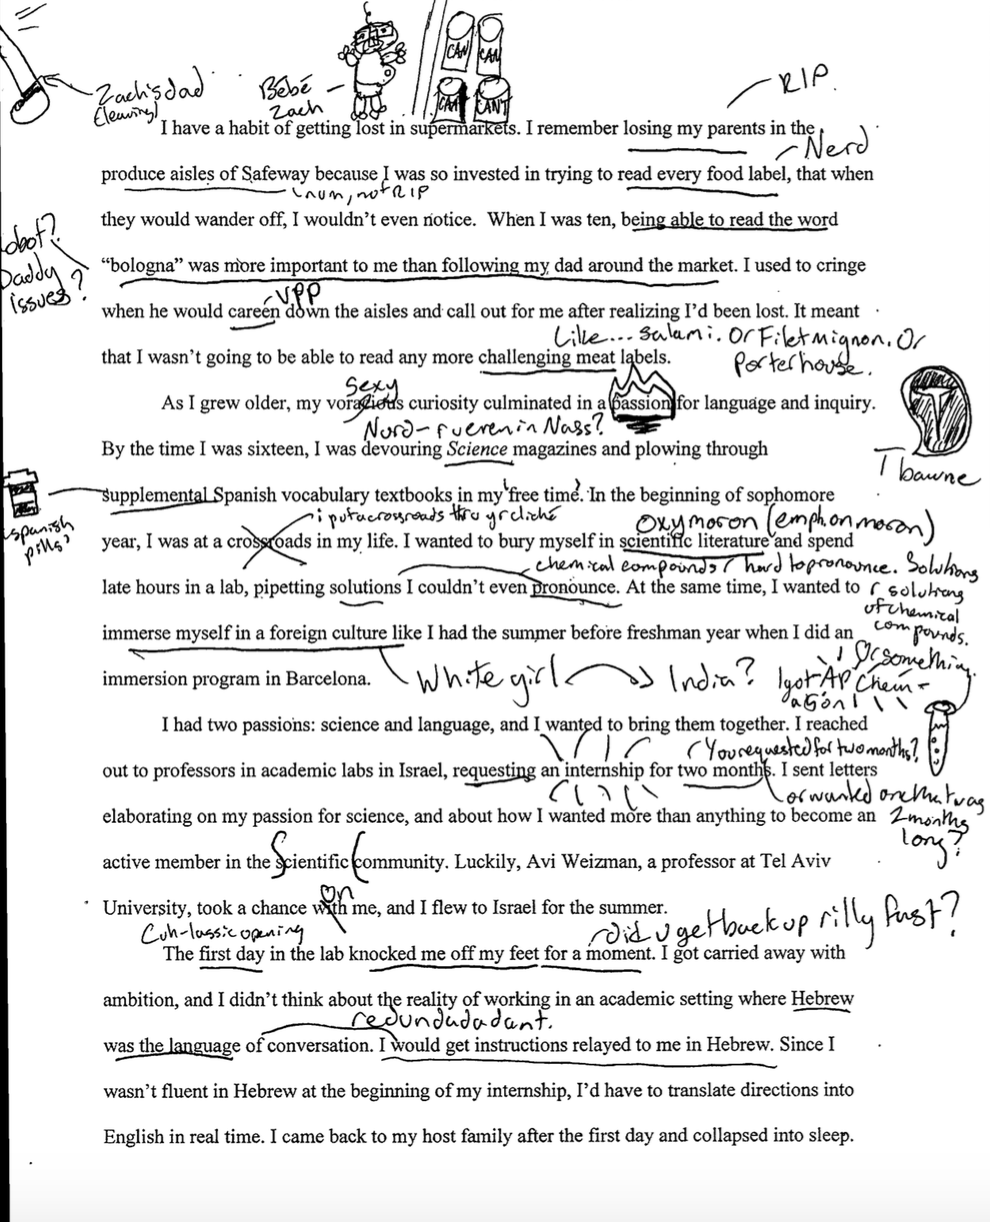 Zach's dad
(leaving)
Bébé
Zach
CAN
CAN
CAN
CAN'T
RIP.
I have a habit of getting lost in supermarkets. I remember losing my parents in the
Nerd
produce aisles of Safeway because I was so invested in trying to read every food label, that when
num, not RIP
they would wander off, I wouldn't even notice. When I was ten, being able to read the word
obot?
Daddy
issues?
"bologna" was more important to me than following my dad around the market. I used to cringe
VPP
when he would careen down the aisles and call out for me after realizing I'd been lost. It meant
Like... salami. Or Filet mignon. Or
Porterhouse.
that I wasn't going to be able to read any more challenging meat labels.
Sexy
As I grew older, my voracious curiosity culminated in a passion for language and inquiry.
Nurd- r u even in Nass?
By the time I was sixteen, I was devouring Science magazines and plowing through
T bawne
supplemental Spanish vocabulary textbooks in my 'free time'. In the beginning of sophomore
spanish
pills?
i put a crossroads thru yr cliché
oxymoron (emph. on moron)
year, I was at a crossroads in my life. I wanted to bury myself in scientific literature and spend
chemical compounds r hard to pronounce. Solutions
r solutions
of chemical
compounds.
late hours in a lab, pipetting solutions I couldn't even pronounce. At the same time, I wanted to
immerse myself in a foreign culture like I had the summer before freshman year when I did an
Or something
White girl
India?
I got AP Chem-
immersion program in Barcelona.
I had two passions: science and language, and I wanted to bring them together. I reached
(You requested for two months?
out to professors in academic labs in Israel, requesting an internship for two months. I sent letters
or wanted one that was
2 months
long?
elaborating on my passion for science, and about how I wanted more than anything to become an
active member in the Scientific Community. Luckily, Avi Weizman, a professor at Tel Aviv
on
University, took a chance with me, and I flew to Israel for the summer.
Cuh-lassic opening
did u get back up rilly fast?
The first day in the lab knocked me off my feet for a moment. I got carried away with
ambition, and I didn't think about the reality of working in an academic setting where Hebrew
redundadadant.
was the language of conversation. I would get instructions relayed to me in Hebrew. Since I
wasn't fluent in Hebrew at the beginning of my internship, I'd have to translate directions into
English in real time. I came back to my host family after the first day and collapsed into sleep.